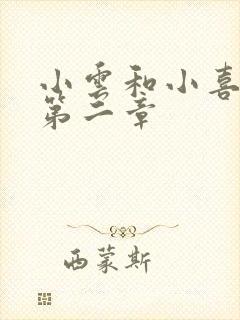 小雲和小喜
第二章
西蒙斯